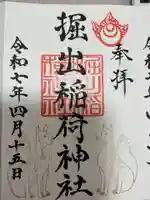 奉拝
掘出稲荷神社
令和七年四月十五日